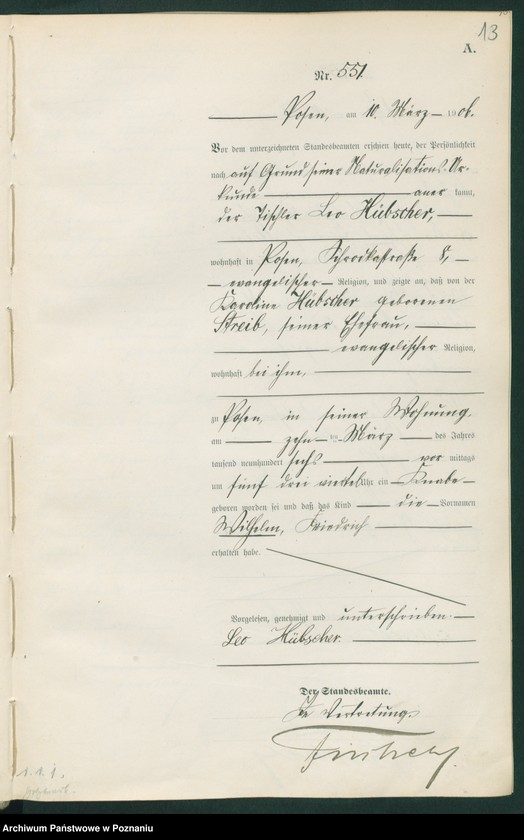 13
A.
Nr. 551.
Posen, am 10. März 1906.
Vor dem unterzeichneten Standesbeamten erschien heute, der Persönlichkeit
nach auf Grund seiner Naturalisations-Ur-
kunde anerkannt,
der Tischler Leo Hübscher,
wohnhaft in Posen,
evangelischer Religion, und zeigte an, daß von der
Karoline Hübscher geborenen
Streib, seiner Ehefrau,
evangelischer Religion,
wohnhaft bei ihm,
zu Posen, in seiner Wohnung
am zehnten März des Jahres
tausend neunhundert sechs vormittags
um fünf drei viertel Uhr ein Knabe
geboren worden sei und daß das Kind die Vornamen
Wilhelm, Friedrich
erhalten habe.
Vorgelesen, genehmigt und unterschrieben
Leo Hübscher.
Der Standesbeamte.
In Vertretung.
1.1.1.
Archiwum Państwowe w Poznaniu